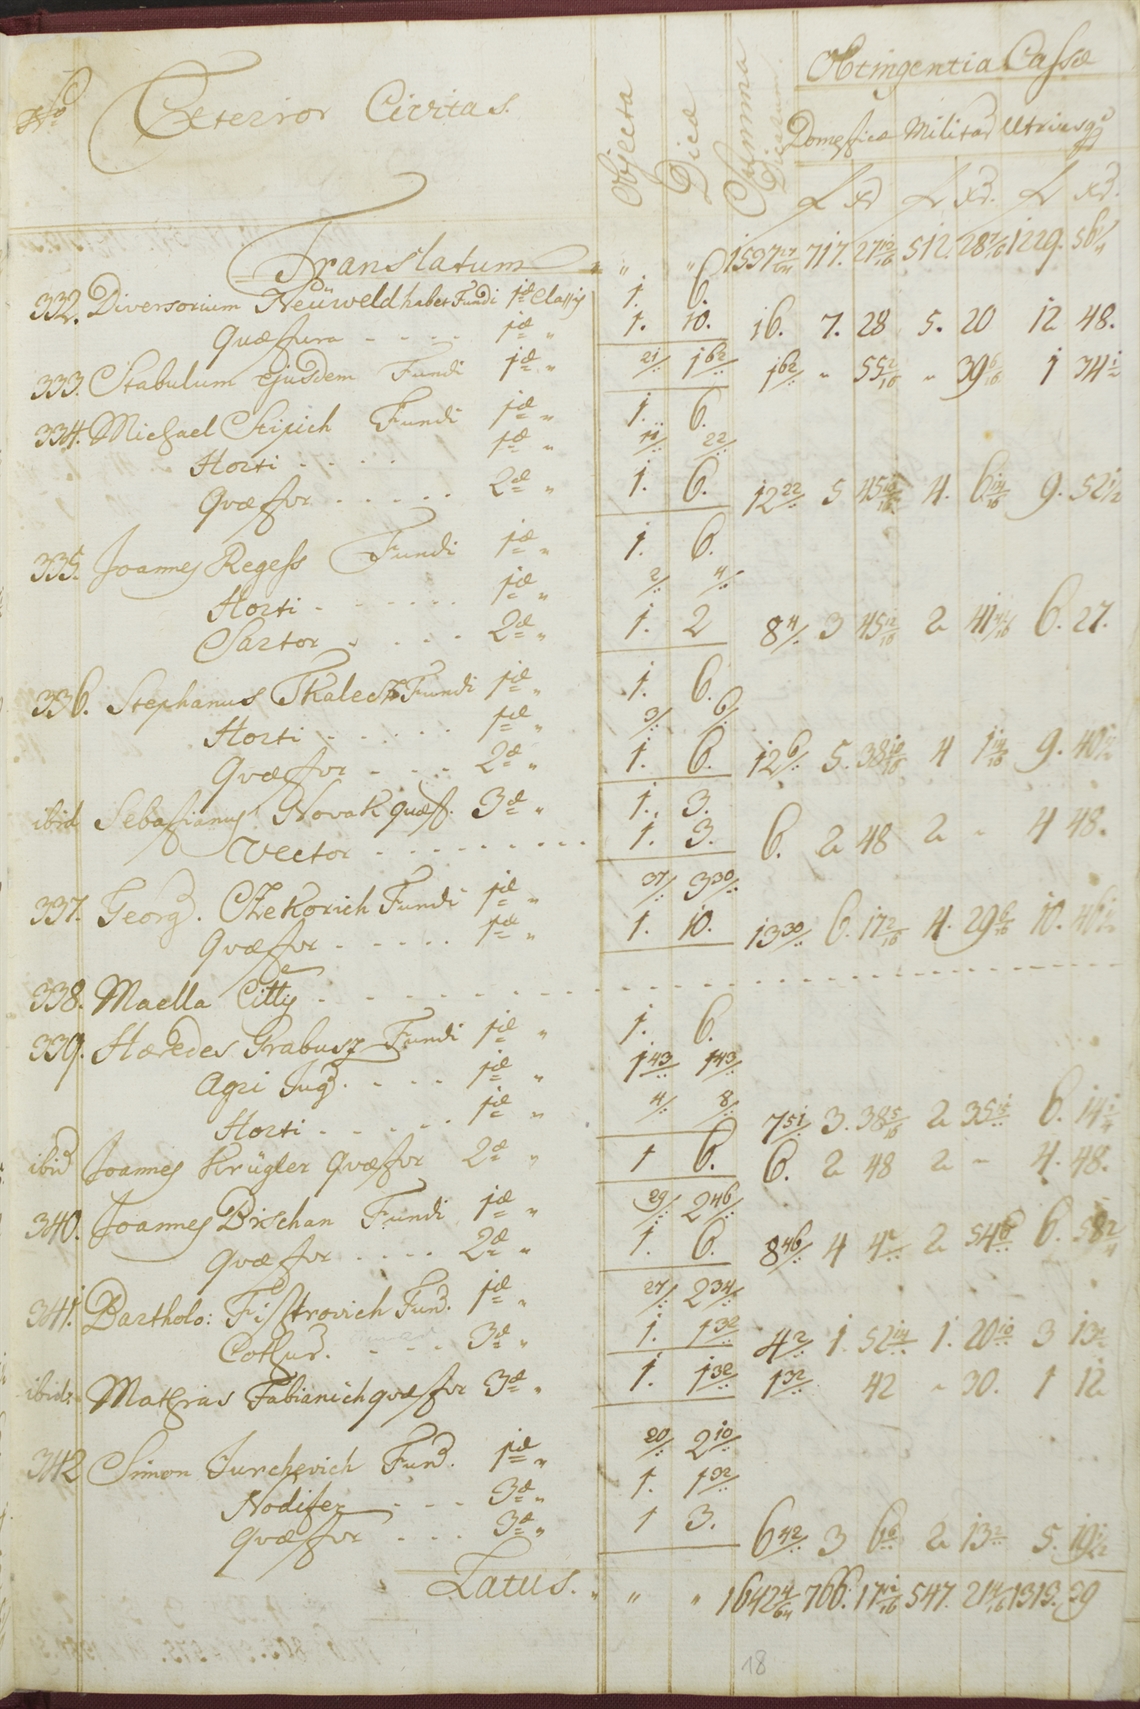 Nro Exterior Civitas. Objecta Dicæ Summa Dicarum. Obtingentia Cassæ
Domesticæ Militar Utriusq3
f xr f xr. f xr.
Translatum " " " 1597 27/64 717. 27 12/16 512. 28 7/16 1229. 56
332. Diversorium Neüweld habet Fundi 1æ Classis 1. 6.
Quæstura - - - - 1æ " 1. 10. 16. 7. 28 5. 20 12 48.
333. Stabulum ejusdem Fundi 1æ " 21/.. 1 62/.. 1 62/.. " 55 2/16 " 39 6/16 1 34 1/2
334. Michael Stijich Fundi 1æ " 1. 6.
Horti - - - - 1æ " 11/.. 22/..
Quæstor - - - - - 2æ " 1. 6. 12 22/.. 5 45 4. 6 9. 52 1/2
335. Joannes Regess Fundi 1æ " 1. 6.
Horti - - - - - - 1æ " 2/.. 4/..
Sartor - - - - 2æ " 1. 2 8 4/.. 3 45 2 41 6. 27.
336. Stephanus Skalecz Fundi 1æ " 1. 6.
Horti - - - - - - 1æ " 3/.. 6/..
Quæstor - - - - 2æ " 1. 6. 12 6/.. 5. 38 10/16 4 1 14/16 9. 40
ibid Sebastianus Novak quæst. 3æ " 1. 3.
Vector - - - - - - - - - 1. 3. 6. 2 48 2 - 4 48.
337. Georg. Czekovich Fundi 1æ " 37/.. 3 30/..
Quæstor - - - - - 1æ " 1. 10. 13 30/.. 6. 17 2/16 4. 29 6/16 10. 46
338. Maella Citty - - - - - - - - - - - -
339. Hæredes Grabusz Fundi 1æ " 1. 6.
Agri Jug. - - - - 1æ " 1 43/.. 1 43/..
Horti - - - - - - 1æ " 4/.. 8/.. 7 51/.. 3. 38 5/16 2 35 6. 14
ibid Joannes Krügler Quæstor 2æ " 1 6. 6. 2 48 2 - 4. 48.
340. Joannes Brschan Fundi 1æ " 29/.. 2 46/..
Quæstor - - - - 2æ " 1. 6. 8 46/.. 4 4 2 54 6. 58
341. Bartholo: Fistrovich Fund. 1æ " 27/.. 2 34/..
Cothur. - - - - 3æ " 1. 1 32/.. 4 2/.. 1. 52 1. 20 3 13
ibid. Mathias Fabianich quæstor 3æ " 1. 1 32/.. 1 32/.. 42 " 30. 1 12
342 Simon Jurchevich Fund. 1æ " 20/.. 2 10/..
Nodifex - - - 3æ " 1. 1 32/..
Quæstor - - - 3æ " 1 3. 6 42/.. 3 6 2 13 5. 19 1/2
Latus. " " " 1642 4/64 766. 17 12/16 547. 21 4/16 1313. 39
18